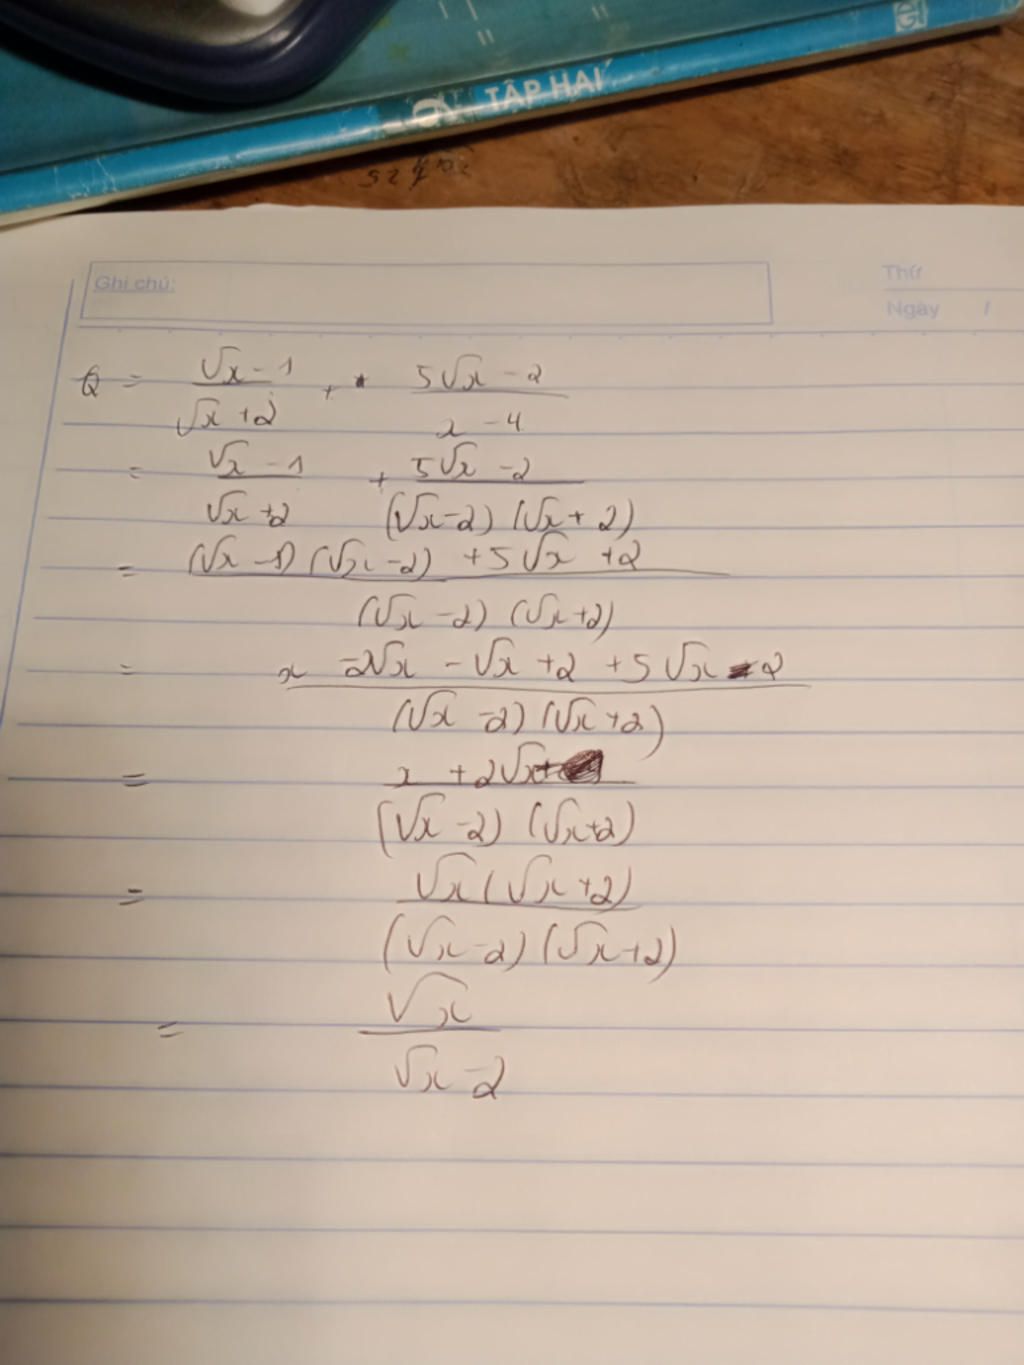 TẬP HAI
Ghi chú:
Thứ
Ngày /
Q = (√x - 1)/(√x + 2) + (5√x - 2)/(x - 4)
= (√x - 1)/(√x + 2) + (5√x - 2)/((√x - 2)(√x + 2))
= ((√x - 1)(√x - 2) + 5√x + 2)/((√x - 2)(√x + 2))
= (x - 2√x - √x + 2 + 5√x - 2)/((√x - 2)(√x + 2))
= (x + 2√x)/((√x - 2)(√x + 2))
= (√x(√x + 2))/((√x - 2)(√x + 2))
= √x/(√x - 2)